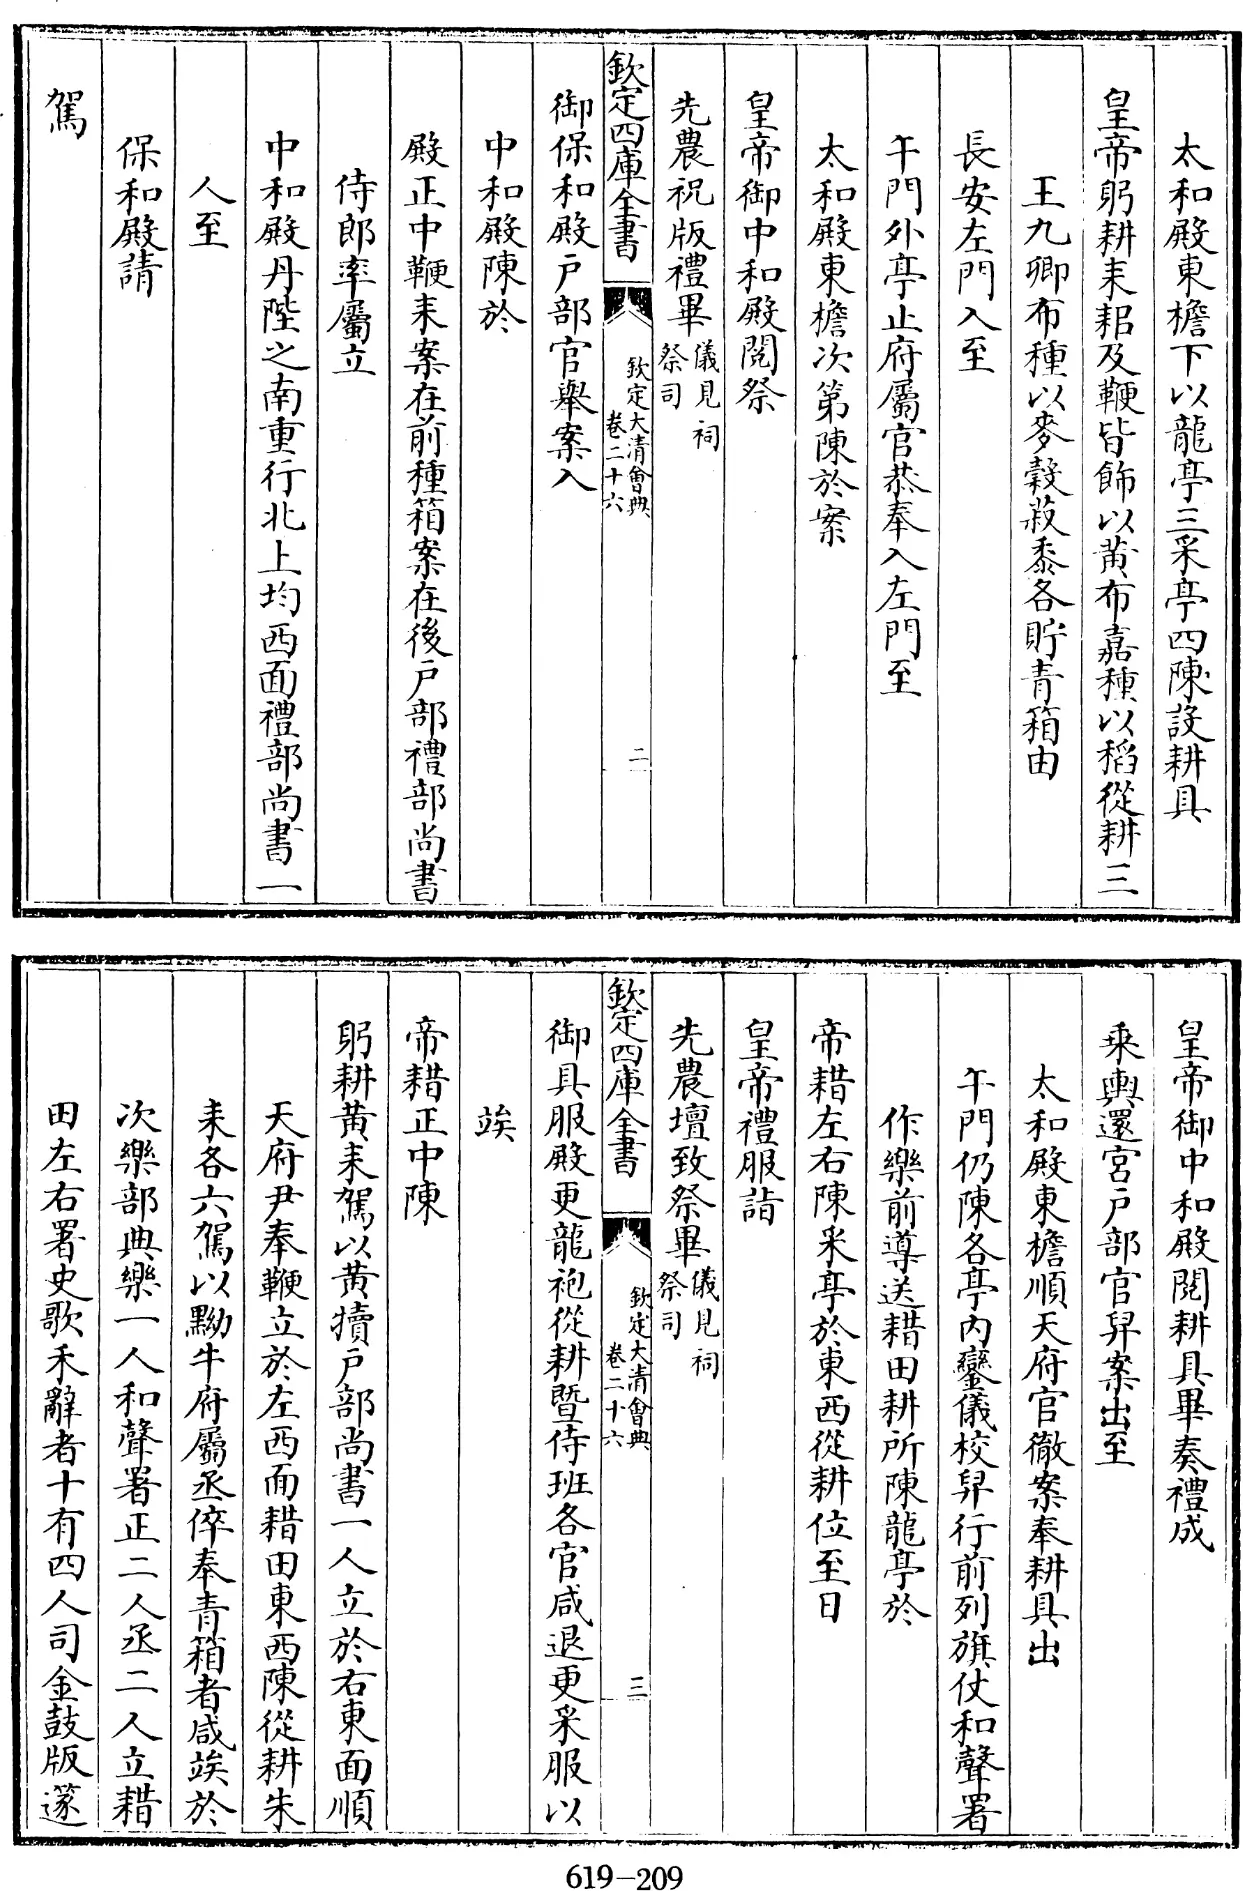 太和殿東檐下以龍亭三采亭四陳設耕具
皇帝躬耕耒耜及鞭皆飾以黄布嘉種以稻從耕三
王九卿布種以麥穀菽黍各貯青箱由
長安左門入至
午門外亭止府屬官恭奉入左門至
太和殿東檐次第陳於案
皇帝御中和殿閲祭
先農祝版禮畢儀見祠
祭司
欽定四庫全書
欽定大清會典
卷二十六
二
御保和殿户部官舉案入
中和殿陳於
殿正中鞭耒案在前種箱案在後户部禮部尚書
侍郎率屬立
中和殿丹陛之南重行北上均西面禮部尚書一
人至
保和殿請
駕
皇帝御中和殿閲耕具畢奏禮成
乗輿還宫户部官舁案出至
太和殿東檐順天府官徹案奉耕具出
午門仍陳各亭内鑾儀校舁行前列旗仗和聲署
作樂前導送耤田耕所陳龍亭於
帝耤左右陳采亭於東西從耕位至日
皇帝禮服詣
先農壇致祭畢儀見祠
祭司
欽定四庫全書
欽定大清會典
卷二十六
三
御具服殿更龍袍從耕暨侍班各官咸退更采服以
竢
帝耤正中陳
躬耕黄耒駕以黄犢户部尚書一人立於右東面順
天府尹奉鞭立於左西面耤田東西陳從耕朱
耒各六駕以黝牛府屬丞倅奉青箱者咸竢於
次樂部典樂一人和聲署正二人丞二人立耤
田左右署史歌禾辭者十有四人司金鼓版篴
619-209